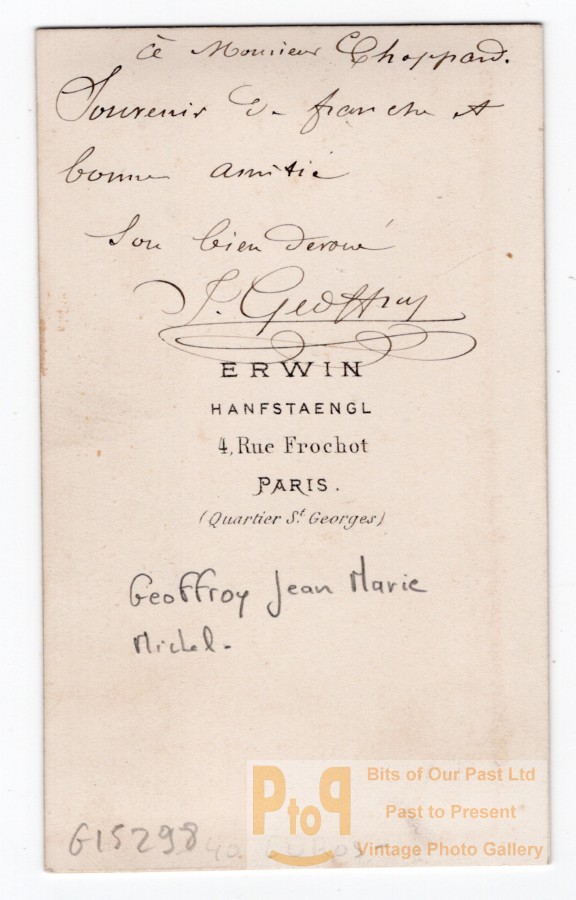 à Monsieur Choppard.
Souvenir de franche et
bonne amitié
Son bien dévoué
J. Geoffroy
ERWIN
HANFSTAENGL
4, Rue Frochot
PARIS.
(Quartier St. Georges)
Geoffroy Jean Marie
Michel.
Bits of Our Past Ltd
PtoP
Past to Present
Vintage Photo Gallery
G15298